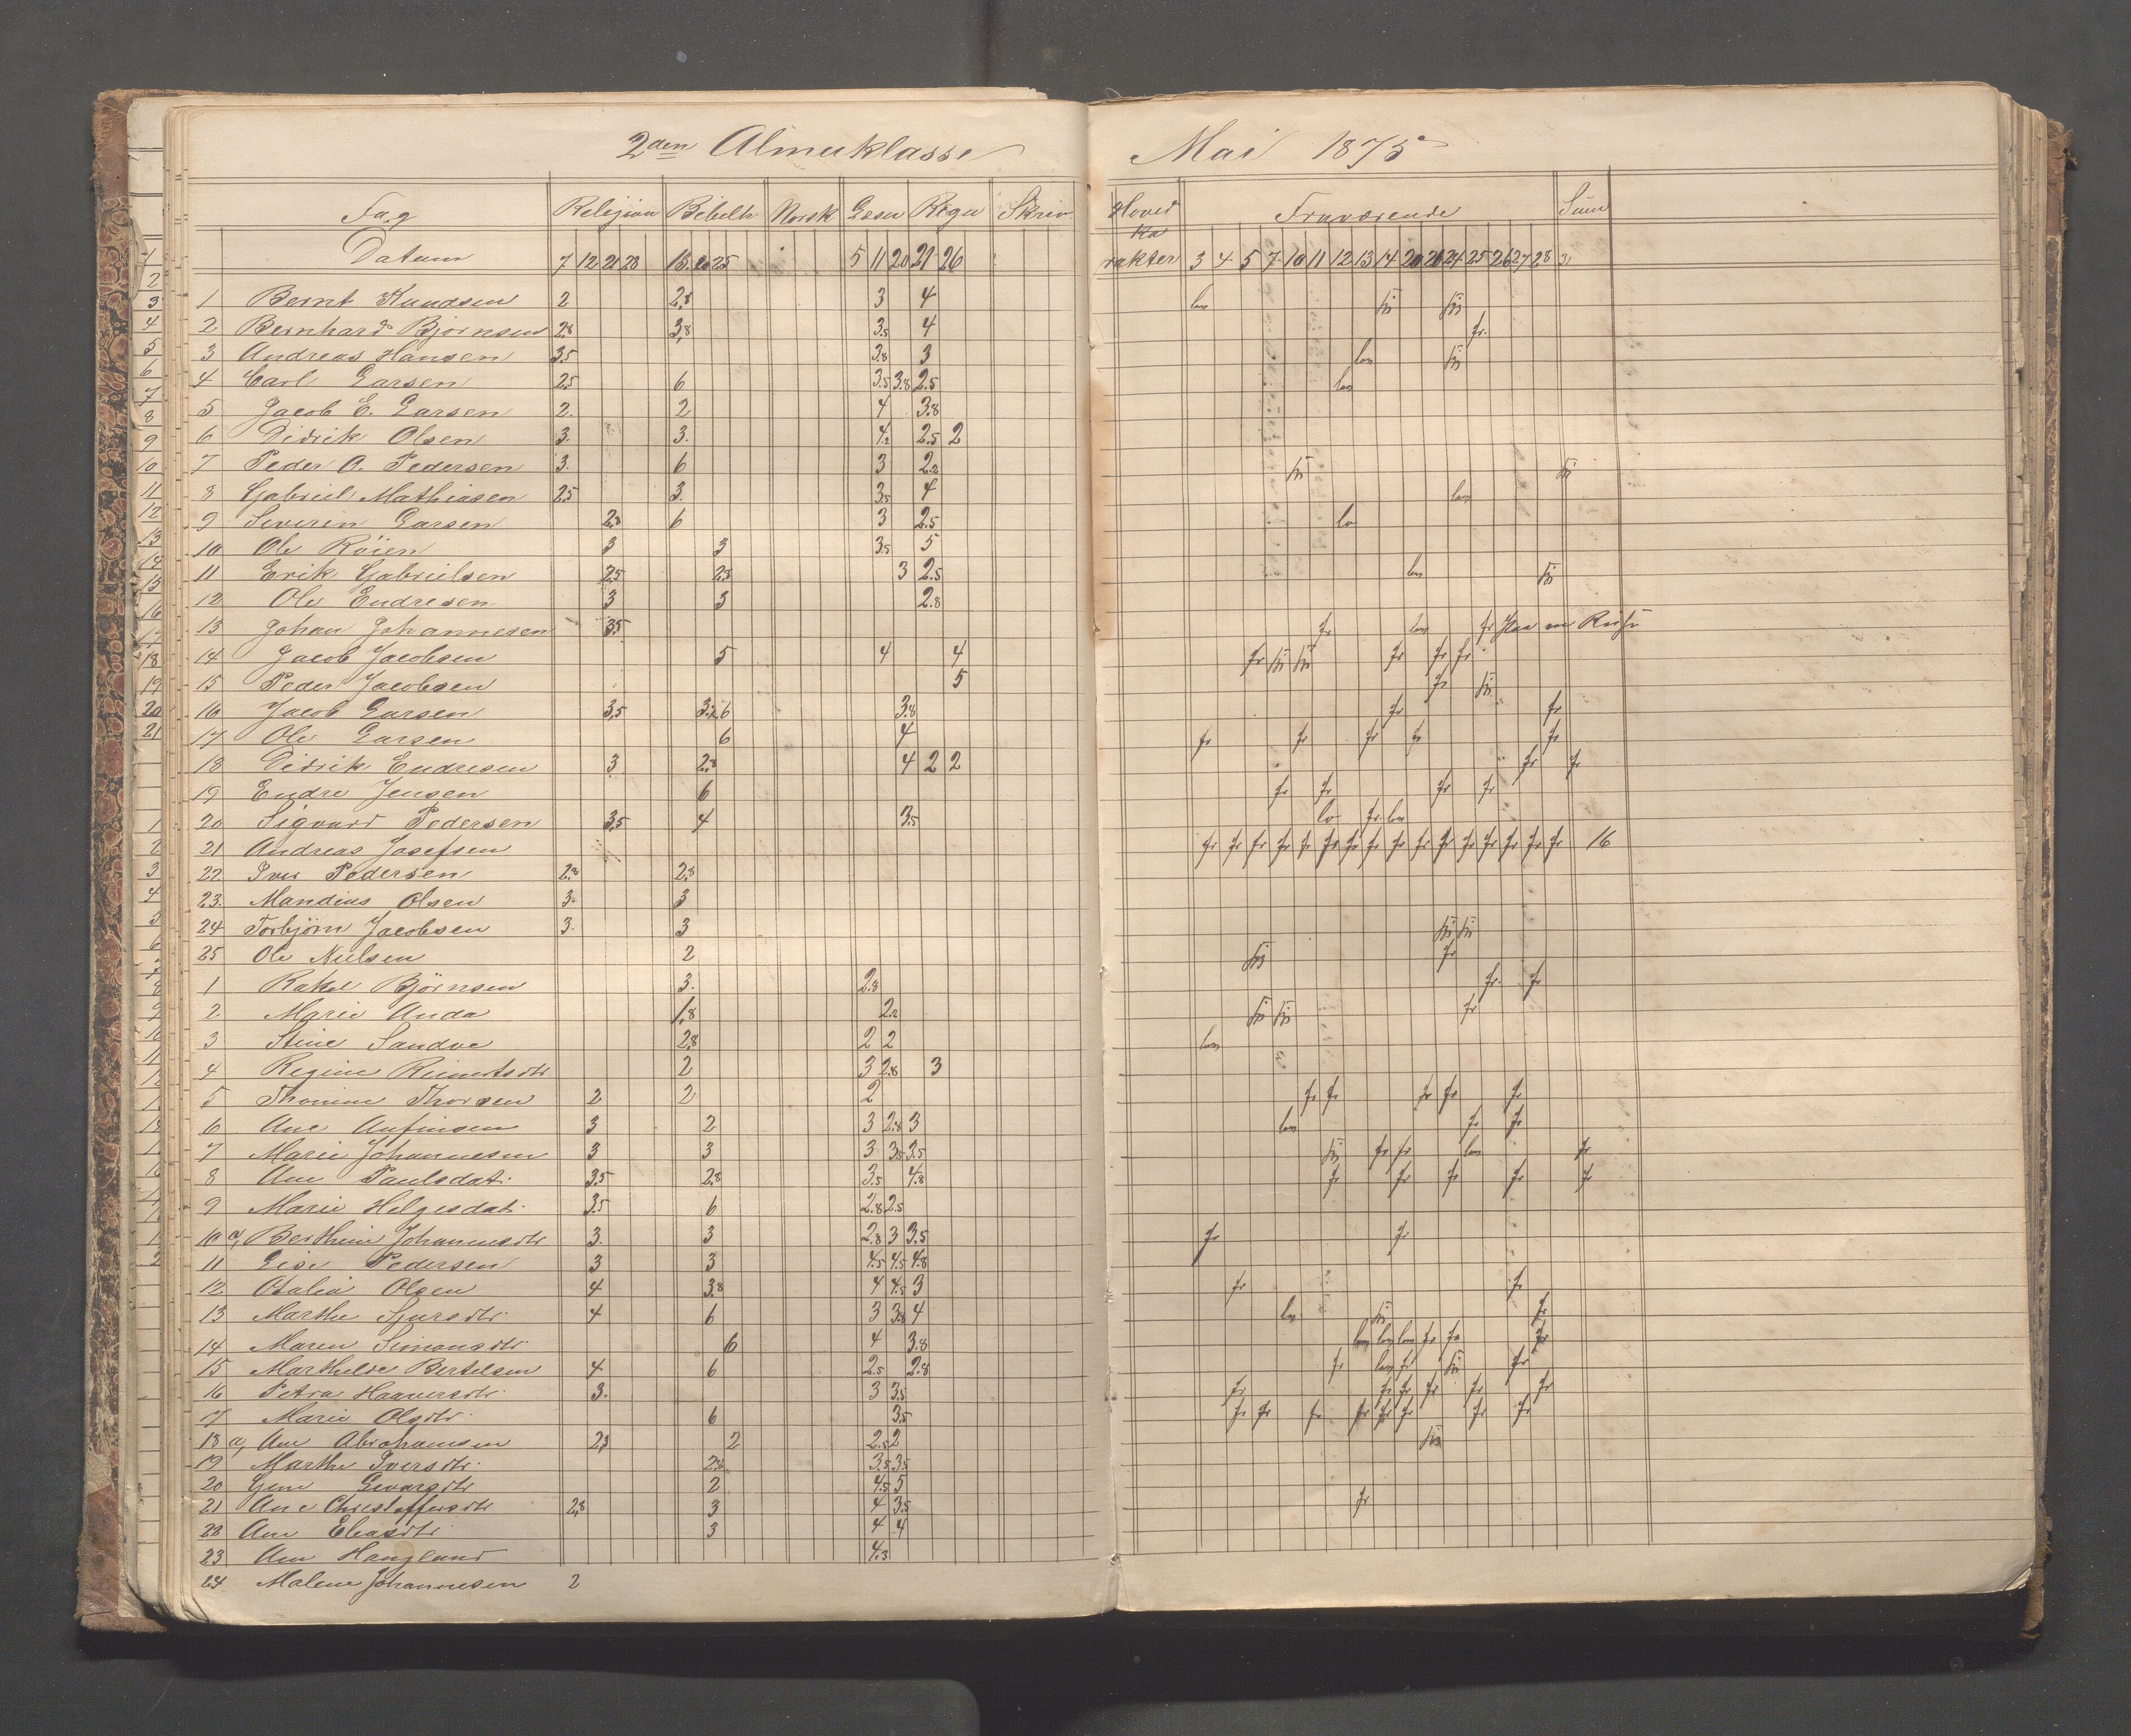 2den Almueklasse Mai 1875
Fag Religion Bibelh Norsk Læsn Regn Skriv. Hoved Fraværende Sum
Datum 7 12 21 28 13. 20 25 5 11 20 21 26 ka rakter 3 4 5 7 10 11 12 13 14 20 21 24 25 26 27 28 31
1 Bernt Knudsen 2 2,8 3 4 lov
2 Bernhard Bjørnsen 2,8 3,8 3.5 4 fr.
3 Andreas Hansen 3.5 3.8 3 lov
4 Carl Larsen 2.5 6 3.5 3.8 2.5 lov
5 Jacob E. Larsen 2. 2 4 3.8
6 Didrik Olsen 3. 3. 4.2 2.5 2
7 Peder A. Pedersen 3. 6 3 2.2
8 Gabriel Mathiasen 2.5 3. 3.5 4 lov
9 Severin Larsen 2,8 6 3 2.5 lo
10 Ole Röien 3 3 3.5 5
11 Erik Gabrielsen 2,5 2,8 3 2.5 lov
12 Ole Endresen 3 3 2.8
13 Johan Johannesen 3.5 fr lov fr
14 Jacob Jacobsen 5 4 4 fr fr fr fr
15 Peder Jacobsen 5 fr
16 Jacob Larsen 3,5 3.2 6 3.8 fr fr
17 Ole Larsen 6 4 fr fr fr fr fr
18 Didrik Endresen 3 2,8 4 2 2 fr fr
19 Endre Jensen 6 fr fr fr fr
20 Sigvard Pedersen 3,5 4 3.5 lo fr. lov
21 Andreas Josefsen fr fr fr fr fr fr fr fr fr fr fr fr fr fr fr fr 16
22 Iver Pedersen 2.8 2,8
23. Mandius Olsen 3. 3
24 Torbjörn Jacobsen 3. 3
25 Ole Nielsen 2 fr
1 Rakel Björnsen 3. 2.8 fr. fr
2 Marie Anda 1,8 2.2 fr
3 Stine Sandve 2,8 2 2 lov
4 Regine 2 3 2.8 3
5 Thomine Thorsen 2 2 2 fr fr fr fr fr
6 Ane Anfinsen 3 2 3 2.8 3 lov fr fr
7 Marie Johannesen 3 3 3 3.5 3.5 fr fr lov fr
8 Ane Paulsdat. 3.5 2,8 3.5 4.8 fr fr fr fr fr
9 Marie Helgesdat. 3.5 6 2.8 2.5
10 a, Berthine Johannesdtr 3. 3 2.8 3 3.5 fr fr
11 Lise Pedersen 3 3 4.5 4.5 4.8
12 Otalia Olsen 4 3.8 4 4.5 3 fr fr
13 Marthe Sjursdtr. 4 6 3 3.8 4 lov fr
14 Maren Simonsdtr. 6 4 3.8 lov lov lov fr fr fr
15 Marthilde Bertelsen 4 6 2.5 2.8 fr lov fr fr
16 Petra Haaversdtr. 3. 3 3.5 fr fr fr fr fr fr
17 Marie Olsdtr. 6 3.5 fr fr fr fr fr fr fr fr
18 a, Ane Abrahamsen 2,3 2 2.5 2
19 Marthe Iversdtr. 2.8 3.5 3.5
20 2 4.5 5
21 Ane Christoffersdtr 2,8 3 4 3.5 fr
22 Ane Eliasdtr. 3 4 4
23 Ane Haugland 4.3
24 Malene Johannesen 2